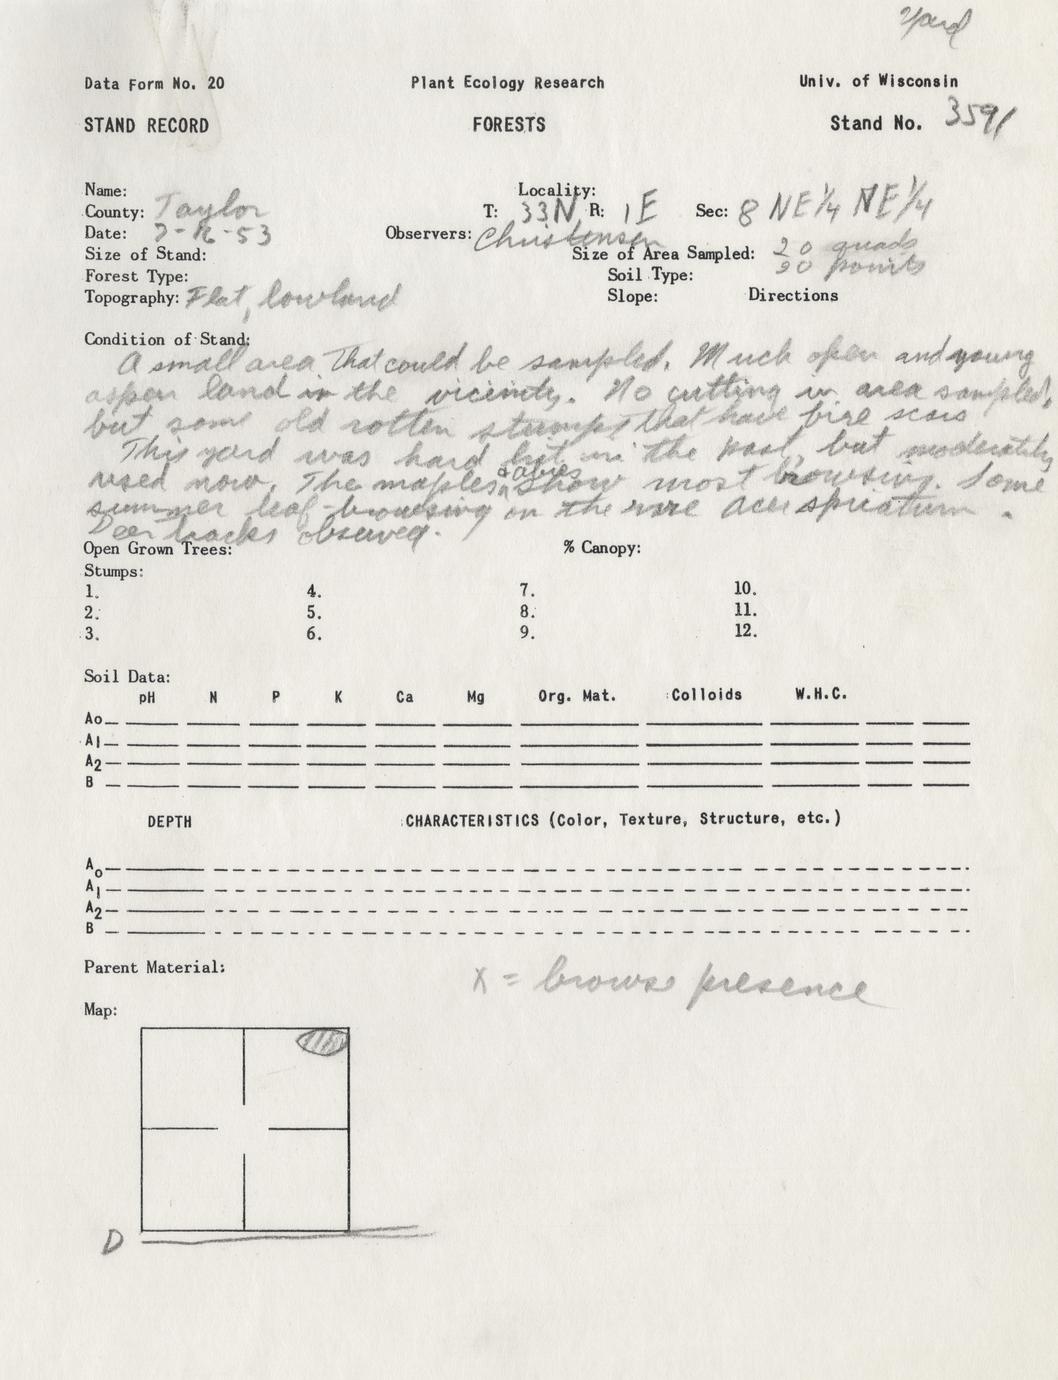 Yard
Data Form No. 20 Plant Ecology Research Univ. of Wisconsin
STAND RECORD FORESTS Stand No. 3591
Name: Locality:
County: Taylor T: 33N R: 1E Sec: 8 NE 1/4 NE 1/4
Date: 7-16-53 Observers: Christensen
Size of Stand: Size of Area Sampled: 20 quads
Forest Type: Soil Type: 90 points
Topography: Flat, lowland Slope: Directions
Condition of Stand:
A small area that could be sampled. Much open and young
aspen land in the vicinity. No cutting in area sampled,
but some old rotten stumps that have fire scars
This yard was hard hit in the past, but moderately
used now. The maples & abies show most browsing. Some
summer leaf-browsing on the rare Acer spicatum.
Deer tracks observed.
Open Grown Trees: % Canopy:
Stumps:
1. 4. 7. 10.
2. 5. 8. 11.
3. 6. 9. 12.
Soil Data:
pH N P K Ca Mg Org. Mat. Colloids W.H.C.
Ao
A1
A2
B
DEPTH CHARACTERISTICS (Color, Texture, Structure, etc.)
Ao
A1
A2
B
Parent Material:
x = browse presence
Map:
D